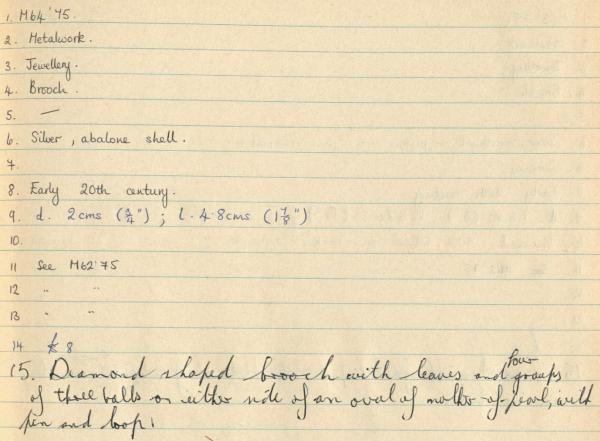 1. M64'75.
2. Metalwork.
3. Jewellery.
4. Brooch.
5. —
6. Silver, abalone shell.
7.
8. Early 20th century.
9. d. 2cms (3/4"); l. 4·8cms (1 7/8")
10.
11 See M62'75
12 " "
13 " "
14 £ 8
15. Diamond shaped brooch with leaves and four groups
of three balls on either side of an oval of mother-of-pearl, with
pin and loop.